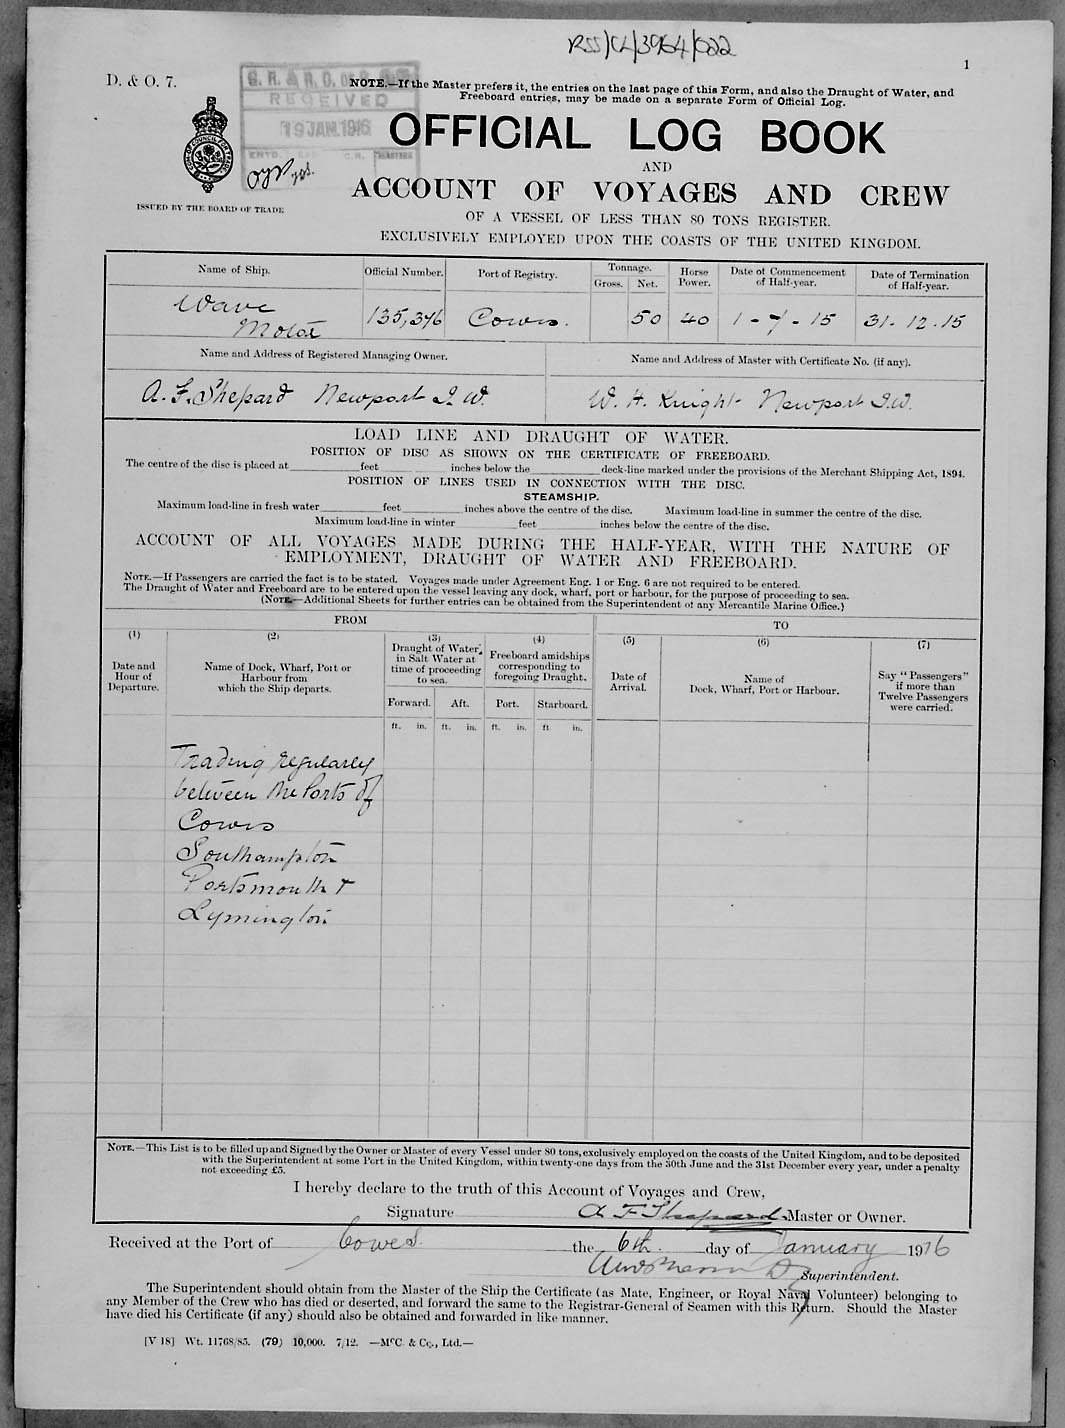 RSS/CL/3964/022
1
D. & O. 7.
NOTE.—If the Master prefers it, the entries on the last page of this Form, and also the Draught of Water, and
Freeboard entries, may be made on a separate Form of Official Log.
RECEIVED
19 JAN. 1916
OFFICIAL LOG BOOK
AND
ACCOUNT OF VOYAGES AND CREW
ISSUED BY THE BOARD OF TRADE
OF A VESSEL OF LESS THAN 80 TONS REGISTER.
EXCLUSIVELY EMPLOYED UPON THE COASTS OF THE UNITED KINGDOM.
Name of Ship. Official Number. Port of Registry. Tonnage. Gross. Net. Horse Power. Date of Commencement of Half-year. Date of Termination of Half-year.
Wave
Motor 135,376 Cowes. 50 40 1-7-15 31.12.15
Name and Address of Registered Managing Owner. Name and Address of Master with Certificate No. (if any).
A. F. Shepard Newport I.W. W. H. Knight Newport I.W.
LOAD LINE AND DRAUGHT OF WATER.
POSITION OF DISC AS SHOWN ON THE CERTIFICATE OF FREEBOARD.
The centre of the disc is placed at feet inches below the deck-line marked under the provisions of the Merchant Shipping Act, 1894.
POSITION OF LINES USED IN CONNECTION WITH THE DISC.
STEAMSHIP.
Maximum load-line in fresh water feet inches above the centre of the disc. Maximum load-line in summer the centre of the disc.
Maximum load-line in winter feet inches below the centre of the disc.
ACCOUNT OF ALL VOYAGES MADE DURING THE HALF-YEAR, WITH THE NATURE OF
EMPLOYMENT, DRAUGHT OF WATER AND FREEBOARD.
NOTE.—If Passengers are carried the fact is to be stated. Voyages made under Agreement Eng. 1 or Eng. 6 are not required to be entered.
The Draught of Water and Freeboard are to be entered upon the vessel leaving any dock, wharf, port or harbour, for the purpose of proceeding to sea.
(NOTE.—Additional Sheets for further entries can be obtained from the Superintendent of any Mercantile Marine Office.)
FROM TO
(1) (2) (3) (4) (5) (6) (7)
Date and Hour of Departure.
Name of Dock, Wharf, Port or Harbour from which the Ship departs.
Draught of Water, in Salt Water at time of proceeding to sea.
Freeboard amidships corresponding to foregoing Draught.
Date of Arrival.
Name of Dock, Wharf, Port or Harbour.
Say "Passengers" if more than Twelve Passengers were carried.
Forward. Aft. Port. Starboard.
ft. in. ft. in. ft. in. ft in.
Trading regularly
between the Ports of
Cowes
Southampton
Portsmouth &
Lymington
NOTE.—This List is to be filled up and Signed by the Owner or Master of every Vessel under 80 tons, exclusively employed on the coasts of the United Kingdom, and to be deposited
with the Superintendent at some Port in the United Kingdom, within twenty-one days from the 30th June and the 31st December every year, under a penalty
not exceeding £5.
I hereby declare to the truth of this Account of Voyages and Crew,
Signature A F Shepard Master or Owner.
Received at the Port of Cowes. the 6th. day of January 1916
Superintendent.
The Superintendent should obtain from the Master of the Ship the Certificate (as Mate, Engineer, or Royal Naval Volunteer) belonging to
any Member of the Crew who has died or deserted, and forward the same to the Registrar-General of Seamen with this Return. Should the Master
have died his Certificate (if any) should also be obtained and forwarded in like manner.
[V 18] Wt. 11768/85. (79) 10,000. 7/12. —McC. & Co., Ltd.—